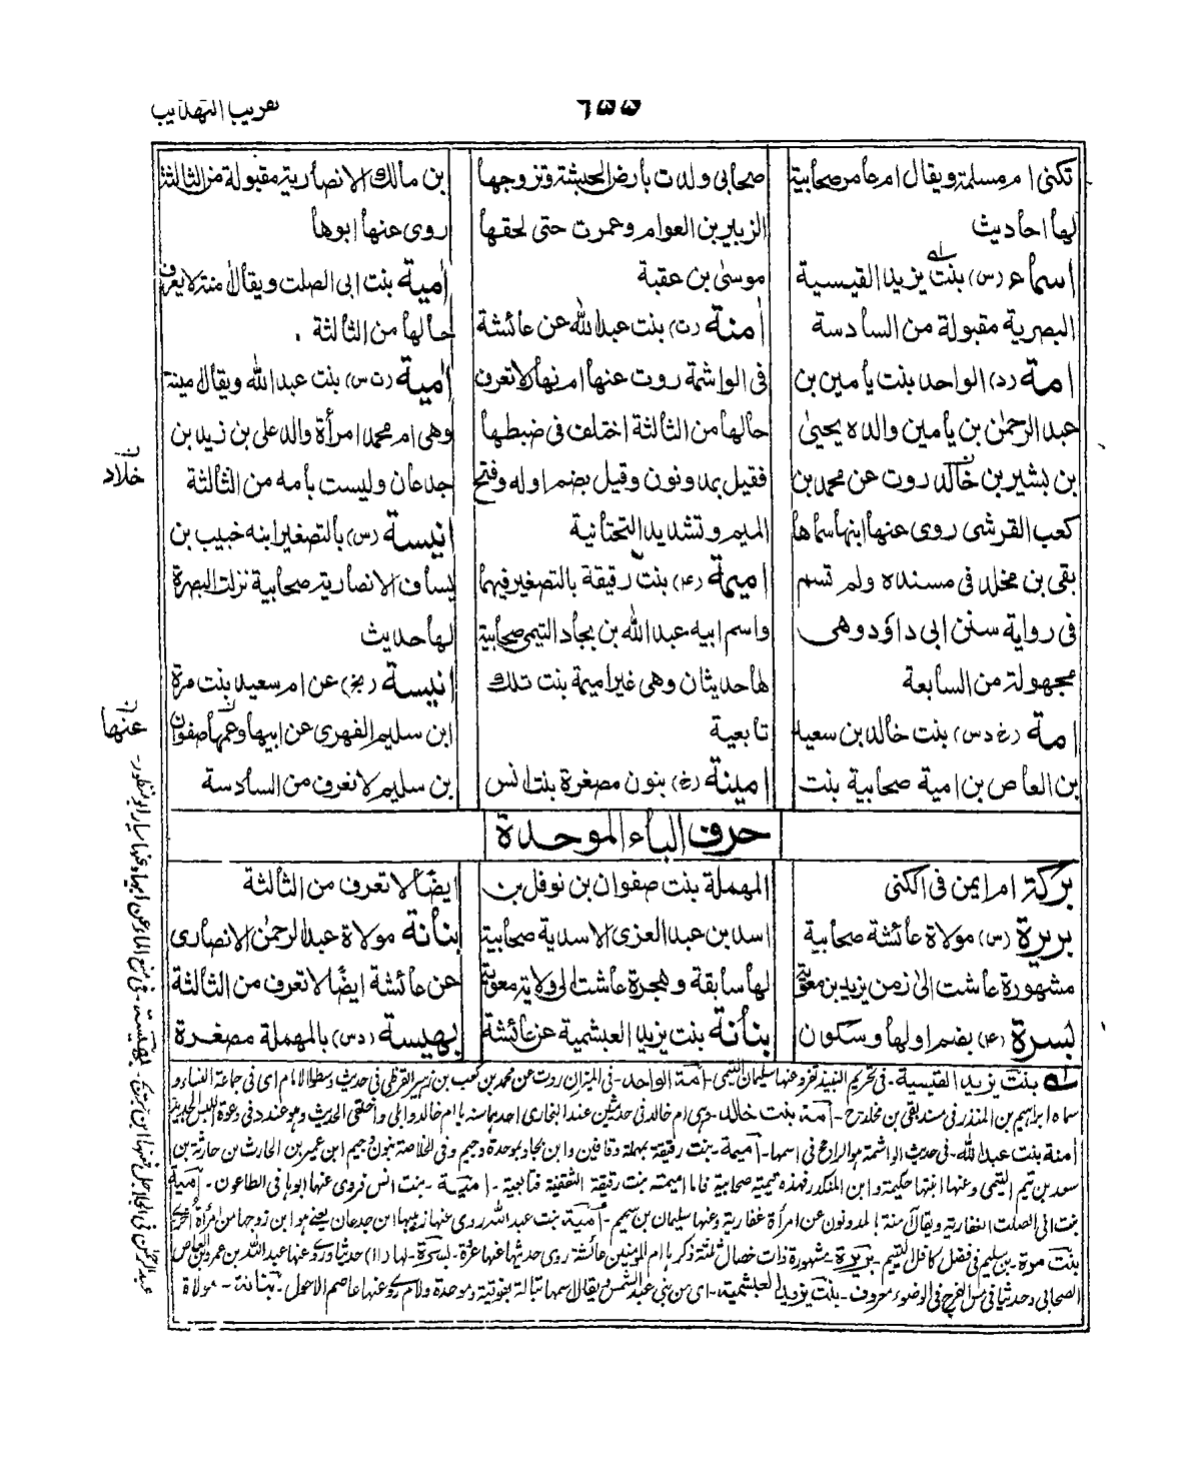 تقريب التهذيب
٦٥٥
تكنى ام مسلمة ويقال ام عامر صحابية
لها احاديث
اسماء (س) بنت يزيد القيسية
البصرية مقبولة من السادسة
امة (د) الواحد بنت يامين بن
عبد الرحمٰن بن يامين والدة يحيىٰ
بن بشير بن خالد روت عن محمد بن
كعب القرشى روى عنها ابنها سماها
بقى بن مخلد فى مسنده ولم تسم
فى رواية سنن ابى داؤد وهى
مجهولة من السابعة
امة (خ د س) بنت خالد بن سعيد
بن العاص بن امية صحابية بنت
صحابى ولدت بارض الحبشة وتزوجها
الزبير بن العوام وعمرت حتى لحقها
موسىٰ بن عقبة
أمنة (ت) بنت عبد الله عن عائشة
فى الواشمة روت عنها ام نهار لا تعرف
حالها من الثالثة اختلف فى ضبطها
فقيل بمد ونون وقيل بضم اوله وفتح
الميم وتشديد التحتانية
اميمة (٤) بنت رقيقة بالتصغير فيهما
واسم ابيه عبد الله بن بجاد التيمى صحابية
لها حديثان وهى غير اميمة بنت تلك
تابعية
امينة (خ) بنون مصغرة بنت انس
بن مالك الانصارية مقبولة من الثالثة
روى عنها ابوها
أمية بنت ابى الصلت ويقال أمنة لا يعرف
حالها من الثالثة .
أمية (ت س) بنت عبد الله ويقال امينة
وهى ام محمد امرأة والد على بن زيد بن
جدعان وليست بامه من الثالثة
انيسة (س) بالتصغير ابنه خبيب بن
يساف الانصارية صحابية نزلت البصرة
لها حديث
انيسة (بخ) عن ام سعيد بنت مرة
ابن سليم الفهرى عن ابيها وعنها صفوان
بن سليم لا تعرف من السادسة
خلاد
عنها
حرف الباء الموحدة
بركة ام ايمن فى الكنى
بريرة (س) مولاة عائشة صحابية
مشهورة عاشت الىٰ زمن يزيد بن معوية
بسرة (٤) بضم اولها وسكون
المهملة بنت صفوان بن نوفل بن
اسد بن عبد العزى الاسدية صحابية
لها سابقة وهجرة عاشت الى ولاية معوية
بنانة بنت يزيد العبشمية عن عائشة
ايضًا لا تعرف من الثالثة
بنانة مولاة عبد الرحمٰن الانصارى
عن عائشة ايضًا لا تعرف من الثالثة
بهيسة (د س) بالمهملة مصغرة
له بنت يزيد القيسية۔ فى تحريم النبيذ تفرد عنها سليمان التيمى۔ امة الواحد۔ فى الميزان روت عن محمد بن كعب
سماه ابراهيم بن المنذر فى مسند بقى بن مخلد۔ امة بنت خالد۔ وهى ام خالد فى حديثين عند البخارى
امنة بنت عبد الله۔ فى حديث الواشمة هو الراجح فى اسمها۔ اميمة۔ بنت رقيقة بمهملة وقافين وابن بجاد بموحدة وجيم وفى الخلاصة بنون وجيم ابن عمير بن الحارث بن حارثة بن
سعد بن تيم التيمى وعنها ابنتها حكيمة وابن المنكدر فهذه تيمية صحابية فاما اميمة بنت رقيقة الثقفية فتابعية۔ امينة۔ بنت انس فروى عنها ابوها فى الطاعون۔ امية
بنت ابى الصلت الغفارية ويقال آمنة بالمد ونون عن امرأة غفارية وعنها سليمان بن سحيم۔ أمية بنت عبد الله روى عنها ربيبها ابن جدعان يعنى هو ابن زوجها من امرأة أخرى
بنت مرة۔ بن سليم فى فضل كافل اليتيم۔ بريرة۔ مشهورة ذات خصال ثلثة ذكرها ام المؤمنين عائشة روى حديثها عنها عروة۔ بسرة۔ لها (١١) حديثا وروى عنها عبد الله بن عمرو بن العاص
الصحابى وحديثها فى مس الفرج فى الوضوء معروف۔ بنت يزيد العبشمية۔ اى من بنى عبد الشمس ويقال اسمها تبالة بفوقية وموحدة ولام روى عنها عاصم الاحول۔ بنانة۔ مولاة